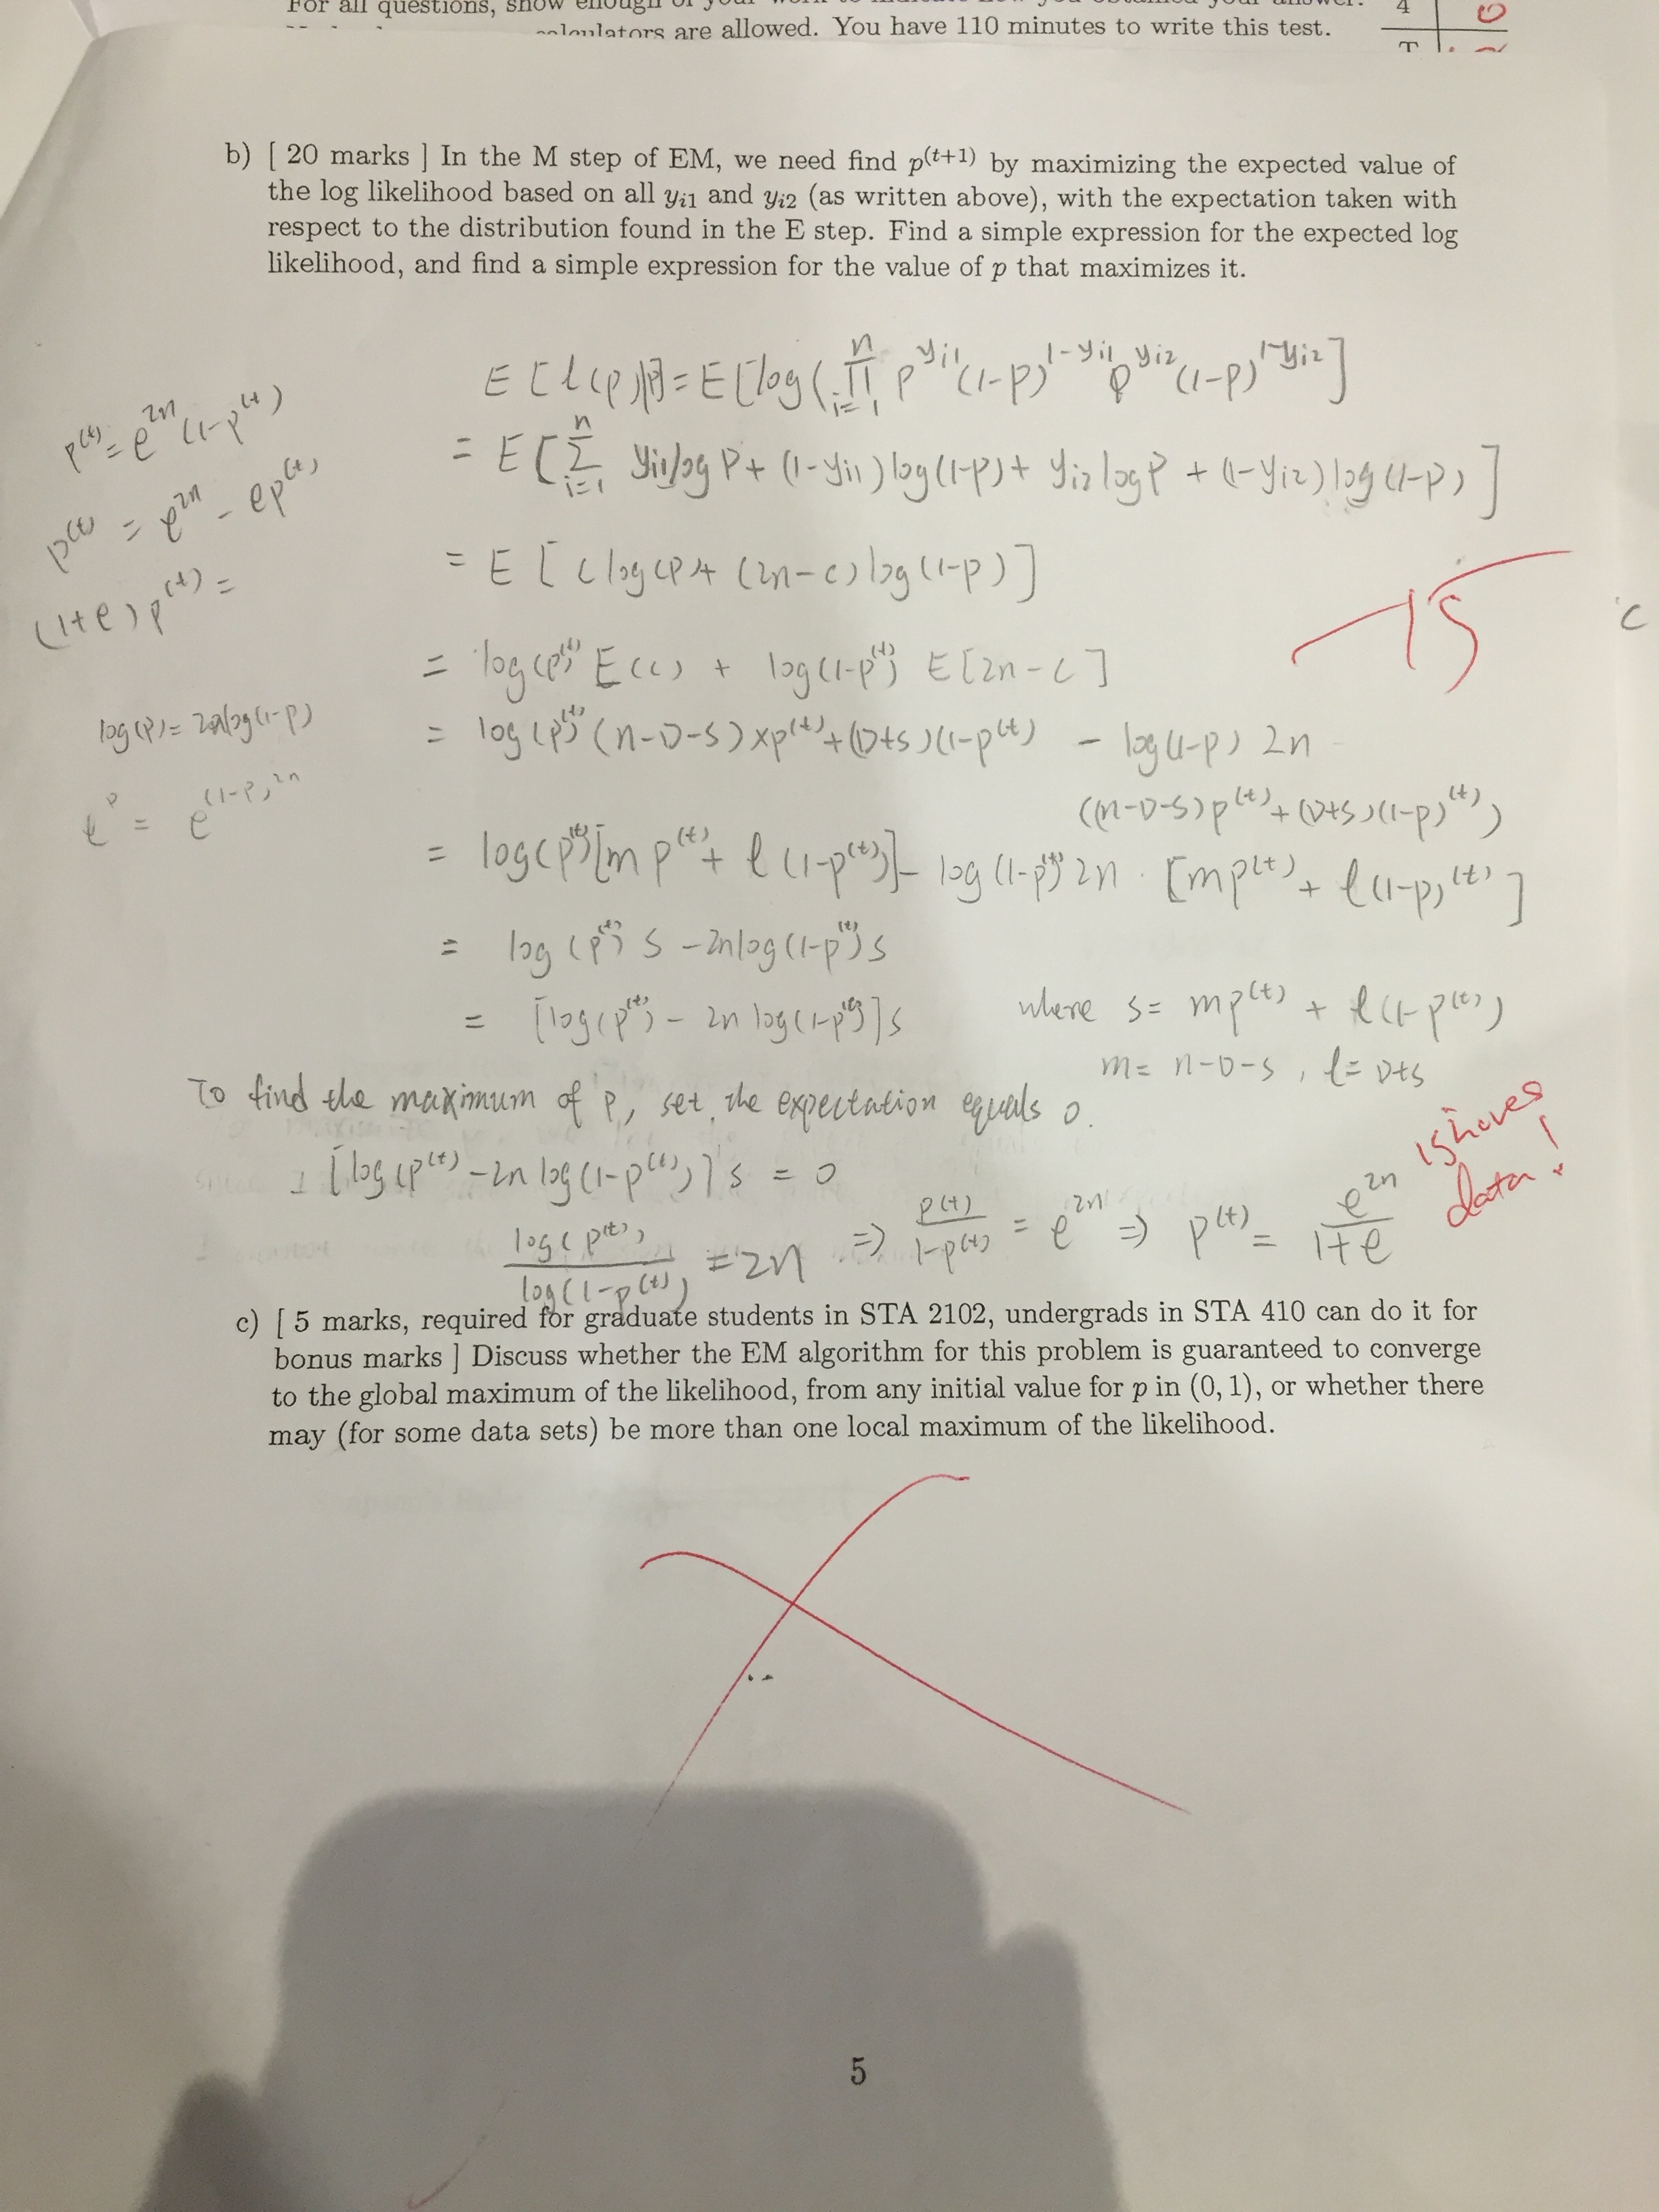 For all questions, show enough of your work to indicate how you obtained your answer.
calculators are allowed. You have 110 minutes to write this test.
4 0
T
b) [ 20 marks ] In the M step of EM, we need find p^(t+1) by maximizing the expected value of
the log likelihood based on all y_i1 and y_i2 (as written above), with the expectation taken with
respect to the distribution found in the E step. Find a simple expression for the expected log
likelihood, and find a simple expression for the value of p that maximizes it.
E[l(p)|p] = E[log(∏_{i=1}^n p^{y_i1}(1-p)^{1-y_i1} p^{y_i2}(1-p)^{1-y_i2}]
= E[∑_{i=1}^n y_i1 log p + (1-y_i1) log(1-p) + y_i2 log p + (1-y_i2) log(1-p)]
= E[c log(p) + (2n-c) log(1-p)]
= log(p^(t)) E(c) + log(1-p^(t)) E[2n-c]
= log(p^(t)) (n-D-S) x p^(t) + (D+S)(1-p^(t)) - log(1-p) 2n
((n-D-S)p^(t) + (D+S)(1-p)^(t))
= log(p^(t)) [m p^(t) + l(1-p^(t))] - log(1-p^(t)) 2n · [m p^(t) + l(1-p)^(t)]
= log(p^(t)) s - 2n log(1-p^(t)) s
= [log(p^(t)) - 2n log(1-p^(t))] s where s = m p^(t) + l(1-p^(t))
m = n-D-S, l = D+S
p^(t) = e^{2n}(1-p^(t))
p^(t) = e^{2n} - e p^(t)
(1+e) p^(t) =
log(p) = 2n log(1-p)
e^p = e^{(1-p)^{2n}}
-15
c
To find the maximum of p, set the expectation equals 0.
[log(p^(t)) - 2n log(1-p^(t))] s = 0
log(p^(t)) / log(1-p^(t)) = 2n ⇒ p^(t) / 1-p^(t) = e^{2n} ⇒ p^(t) = e^{2n} / 1+e
ignores
data!
c) [ 5 marks, required for graduate students in STA 2102, undergrads in STA 410 can do it for
bonus marks ] Discuss whether the EM algorithm for this problem is guaranteed to converge
to the global maximum of the likelihood, from any initial value for p in (0, 1), or whether there
may (for some data sets) be more than one local maximum of the likelihood.
5